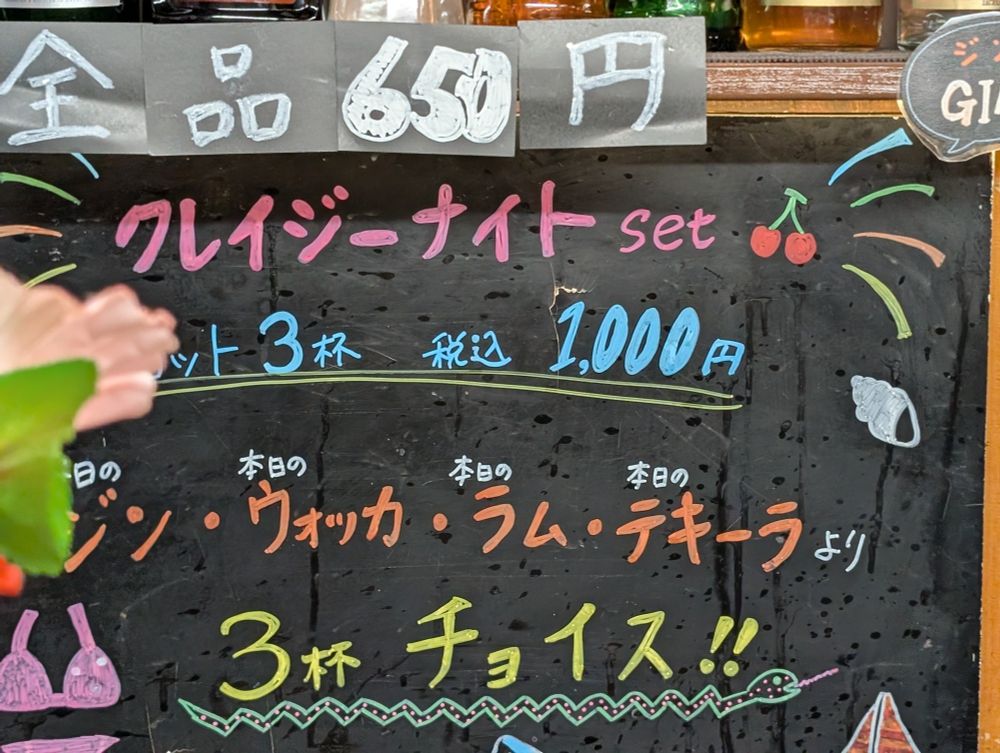 全品650円
クレイジーナイト set
ット 3杯 税込 1,000円
本日の 本日の 本日の
ジン・ウォッカ・ラム・テキーラより
3杯 チョイス!!